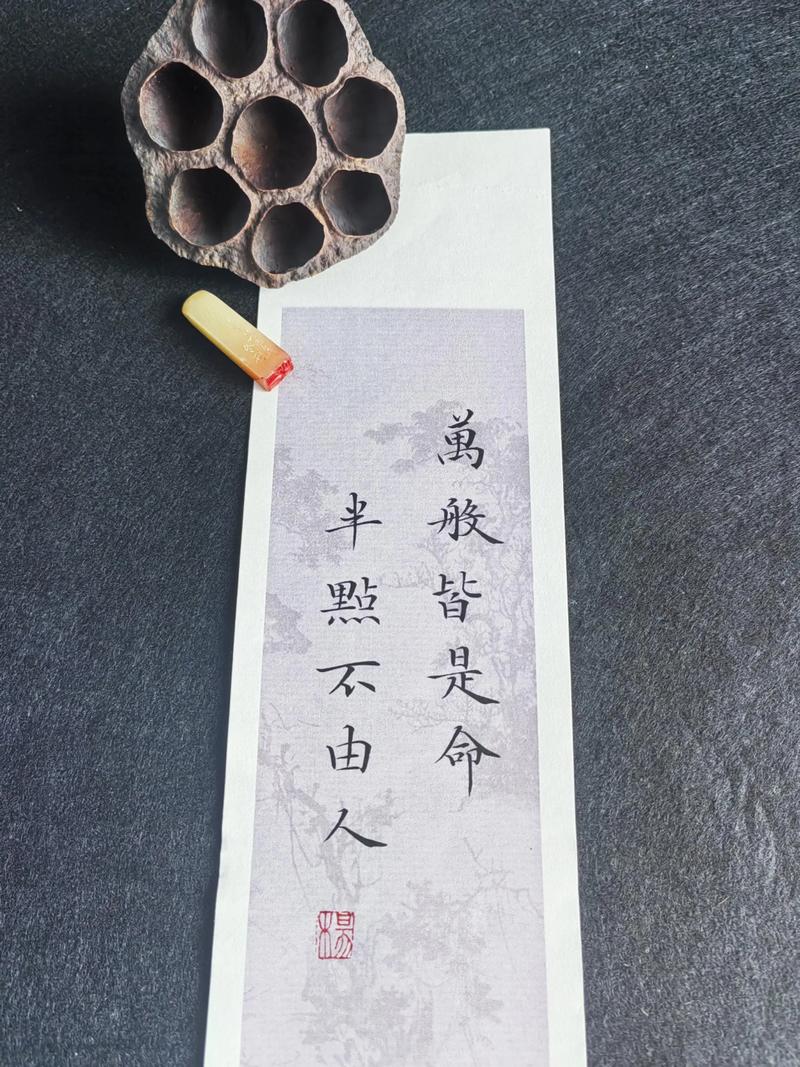 萬般皆是命
半點不由人
楊